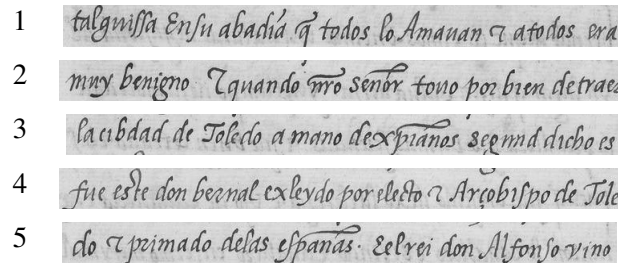 1 talguissa Ensu abadia q̃ todos lo Amauan ⁊ atodos era
2 muy benigno ⁊quando nr̃o señor touo por bien detraer
3 lacibdad de Toledo a mano dexp̃ianos segund dicho es
4 fue este don bernal exleydo por electo ⁊ Arçobispo de Tole
5 do ⁊ primado delas españas. Eelrei don Alfonso vino